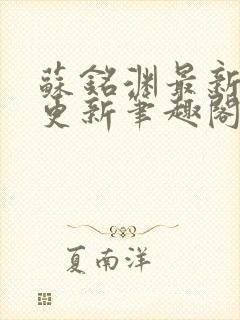 蘇銘淵最新
更新筆趣閣
夏南洋